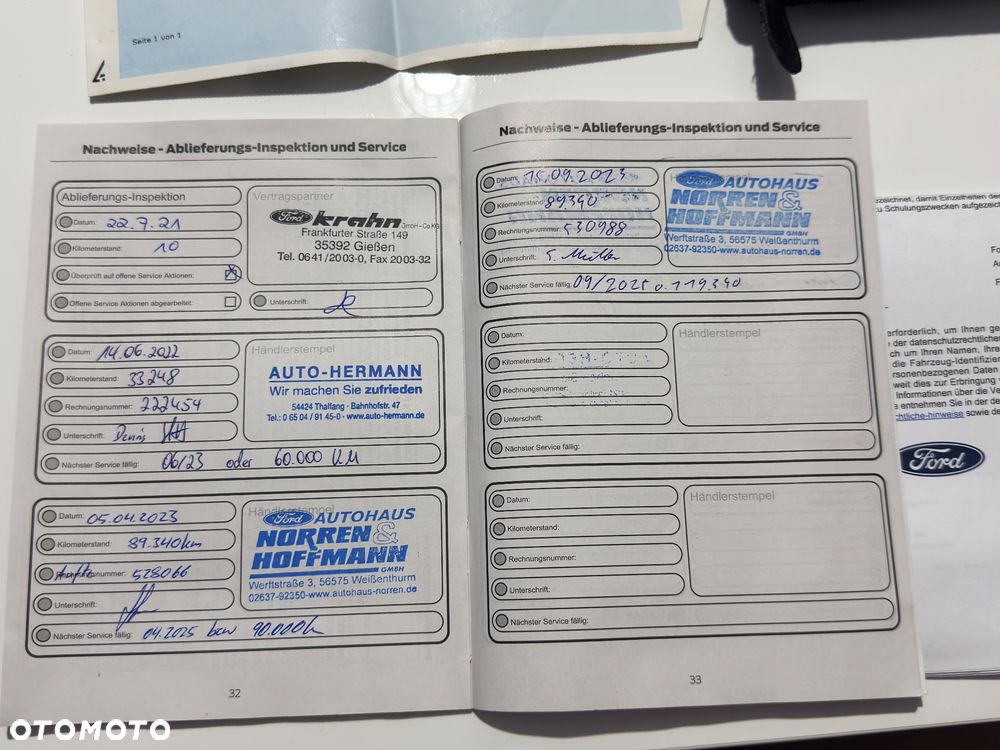 Seite 1 von 1
Nachweise - Ablieferungs-Inspektion und Service
Ablieferungs-Inspektion
Datum: 22.7.21
Kilometerstand: 10
Überprüft auf offene Service Aktionen:
Offene Service Aktionen abgearbeitet:
Vertragspartner
Ford krahn GmbH-Co.KG
Frankfurter Straße 149
35392 Gießen
Tel. 0641/2003-0, Fax 2003-32
Unterschrift:
Datum: 14.06.2022
Kilometerstand: 33248
Rechnungsnummer: 222454
Unterschrift: Dennis
Nächster Service fällig: 06/23 oder 60.000 KM
Händlerstempel
AUTO-HERMANN
Wir machen Sie zufrieden
54424 Thalfang · Bahnhofstr. 47
Tel.: 0 65 04 / 91 45-0 · www.auto-hermann.de
Datum: 05.04.2023
Kilometerstand: 89.340km
Rechnungsnummer: 528066
Unterschrift:
Nächster Service fällig: 04.2025 bzw 90.000k
Händlerstempel
Ford AUTOHAUS
NORREN &
HOFFMANN
GMBH
Werftstraße 3, 56575 Weißenthurm
02637-92350-www.autohaus-norren.de
32
Nachweise - Ablieferungs-Inspektion und Service
Datum: 15.09.2023
Kilometerstand: 89390
Rechnungsnummer: 530988
Unterschrift: S. Müller
Nächster Service fällig: 09/2025 o. 119.390
Ford AUTOHAUS
NORREN &
HOFFMANN
GMBH
Werftstraße 3, 56575 Weißenthurm
02637-92350-www.autohaus-norren.de
Datum:
Kilometerstand:
Rechnungsnummer:
Unterschrift:
Nächster Service fällig:
Händlerstempel
Datum:
Kilometerstand:
Rechnungsnummer:
Unterschrift:
Nächster Service fällig:
Händlerstempel
33
damit Einzelheiten der
zu Schulungszwecken aufgezeic
erforderlich, um Ihnen ge
der datenschutzrechtlicher
ch um Ihren Namen, Ihre
die Fahrzeug-Identifizi
rsonenbezogenen Daten
weit dies zur Erbringung
Informationen über die Ve
entnehmen Sie in der de
chtliche-hinweise sowie de
Ford
OTOMOTO